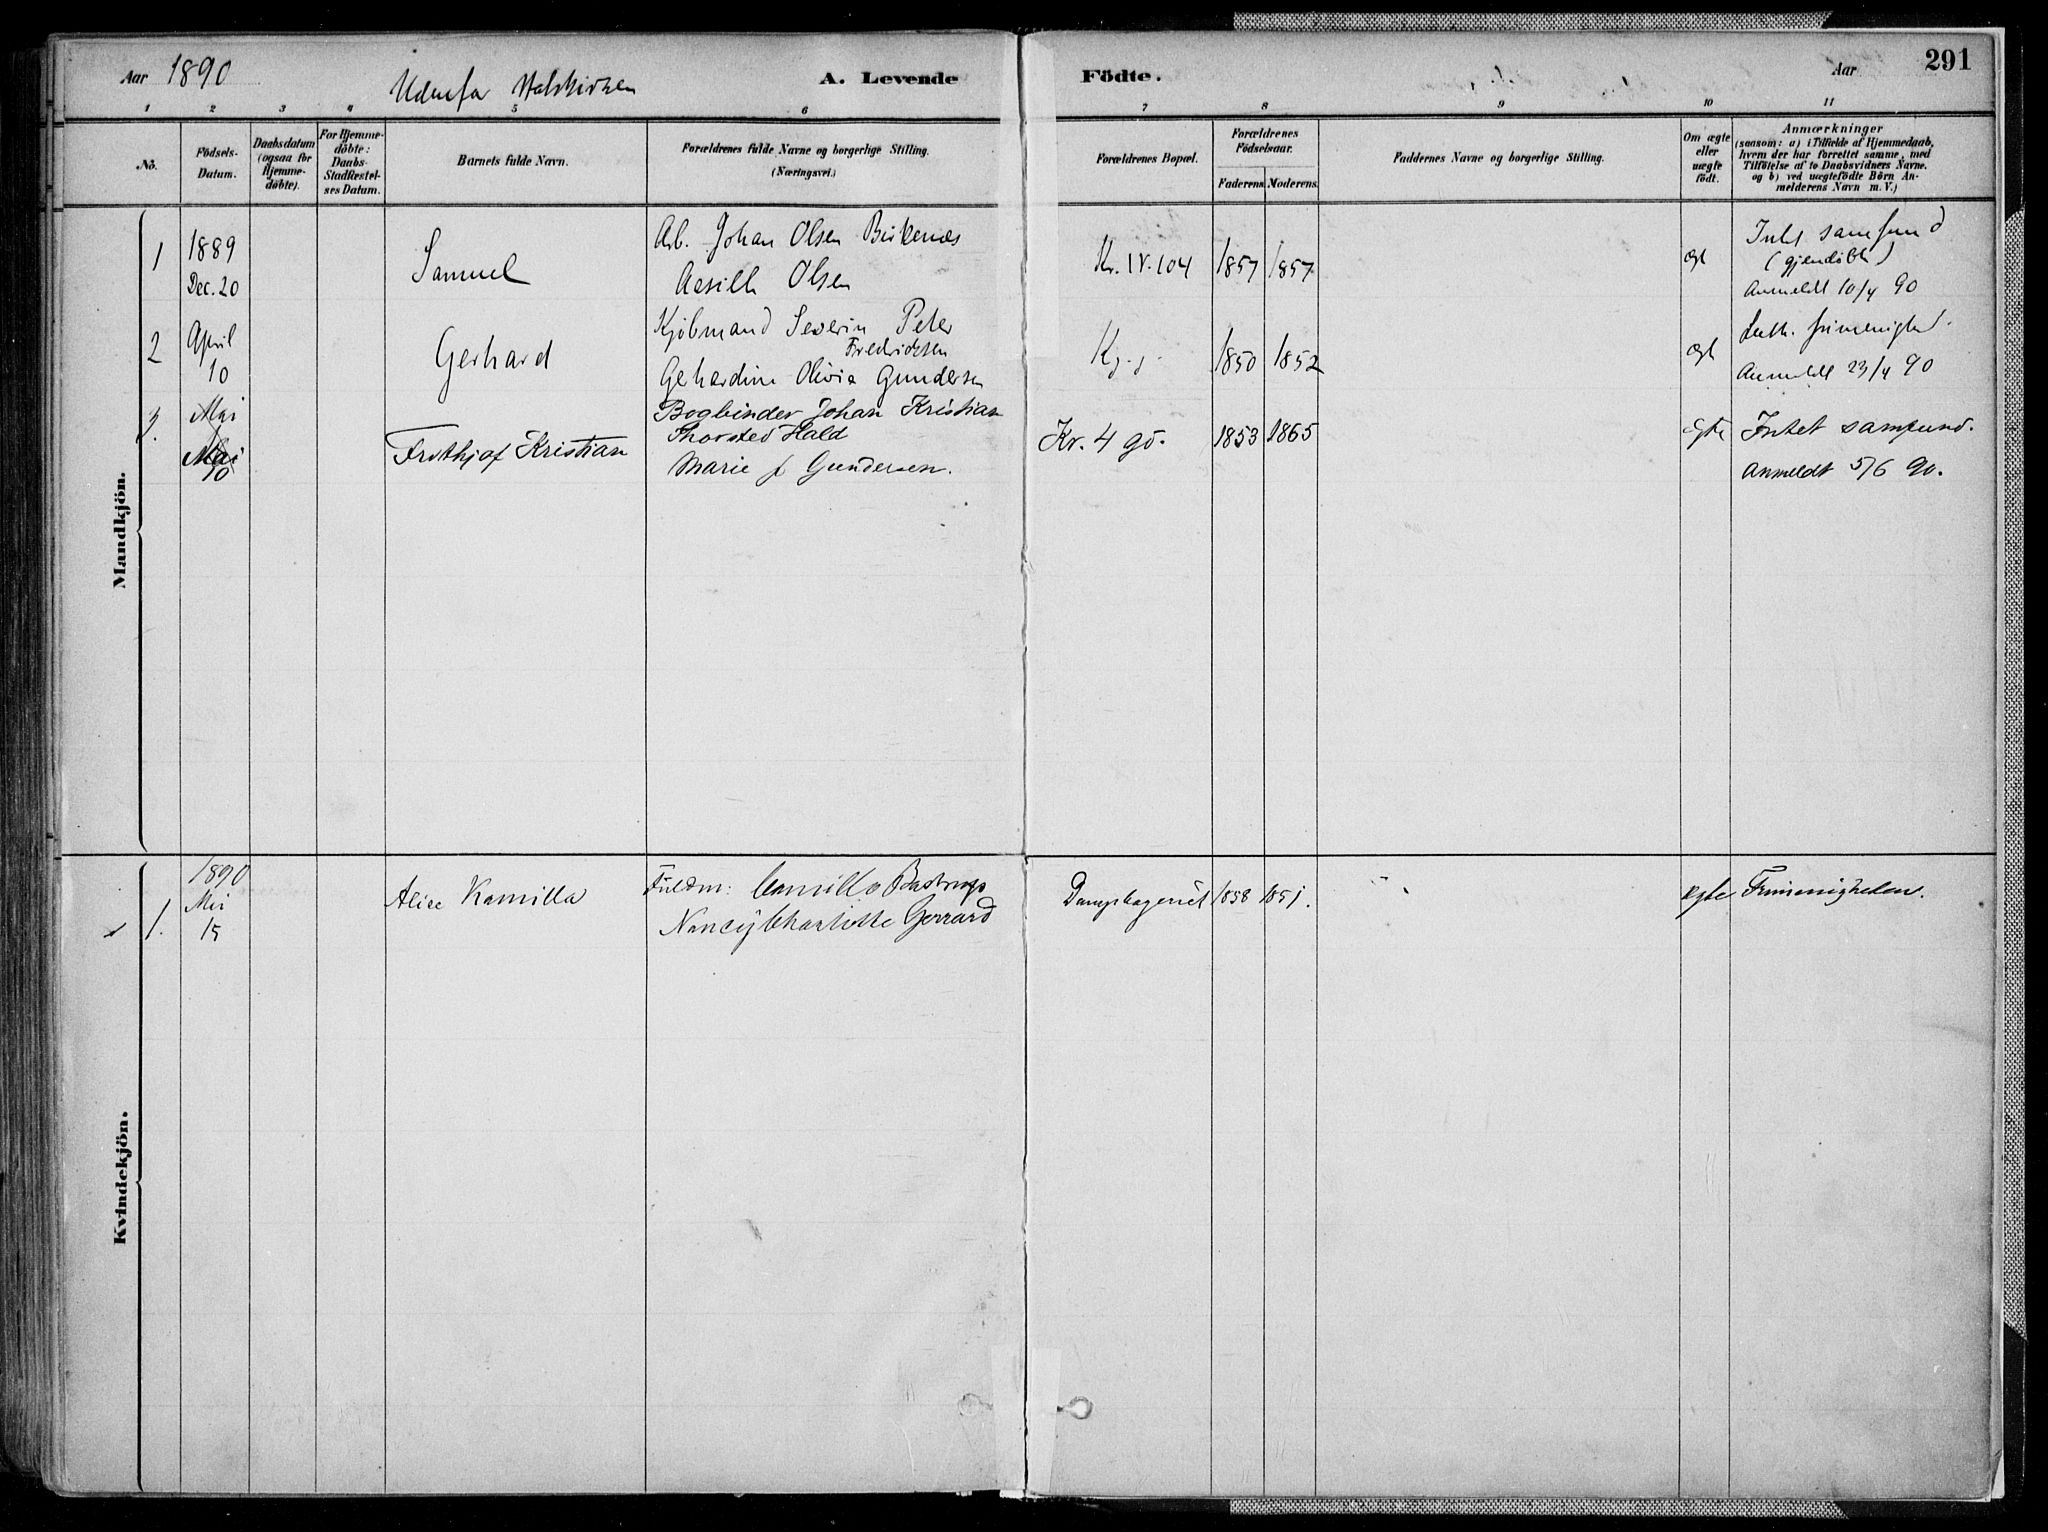 Aar 1890
Udenfor Statskirken
A. Levende Födte.
Aar
291
1 2 3 4 5 6 7 8 9 10 11
Nô.
Födsels-Datum.
Daabsdatum (ogsaa for Hjemmedöbte).
For Hjemmedöbte: Daabs-Stadfæstelses Datum.
Barnets fulde Navn.
Forældrenes fulde Navne og borgerlige Stilling.
(Næringsvei.)
Forældrenes Bopæl.
Forældrenes Födselsaar.
Faderens. Moderens.
Faddernes Navne og borgerlige Stilling.
Om ægte eller uægte födt.
Anmærkninger
(saasom: a) i Tilfælde af Hjemmedaab,
hvem der har forrettet samme, med
Tilföielse af to Daabsvidners Navne.
og b) ved uægtefödte Börn Anmelderens Navn m. V.)
Mandkjön.
1 1889 Dec. 20 Samuel
Arb. Johan Olsen Birkenæs
Olsen
Kr. IV. 104 1857 1857 ægt
samfund
(gjendöbt)
Anmeldt 10/4 90
2 April 10 Gerhard
Kjöbmand Severin Peter
Fredriksen
Gehardine Olivia Gundersen
1850 1852 ægt
Luth. frimenighed.
Anmeldt 23/4 90
3. Mai
Mai 10
Frithjof Kristian
Bogbinder Johan Kristian
Thorsted Hald
Marie J Gundersen.
Kr. 4 90. 1853 1865 ægte
Intet samfund.
Anmeldt 5/6 90.
Kvindekjön.
1. 1890 Mai 15 Alice Kamilla
Fuldm: Camillo Bastrup
Nancy Charlotte Gerrard
Dampbageriet 1858 1851. ægte Frimenigheden.